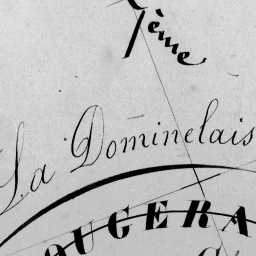 7ème
La Dominelais
OUGERA